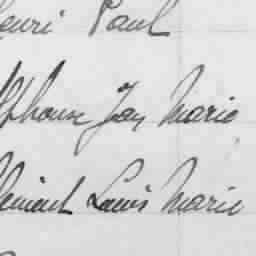 Henri Paul
Alphonse Jean Marie
Clément Louis Marie